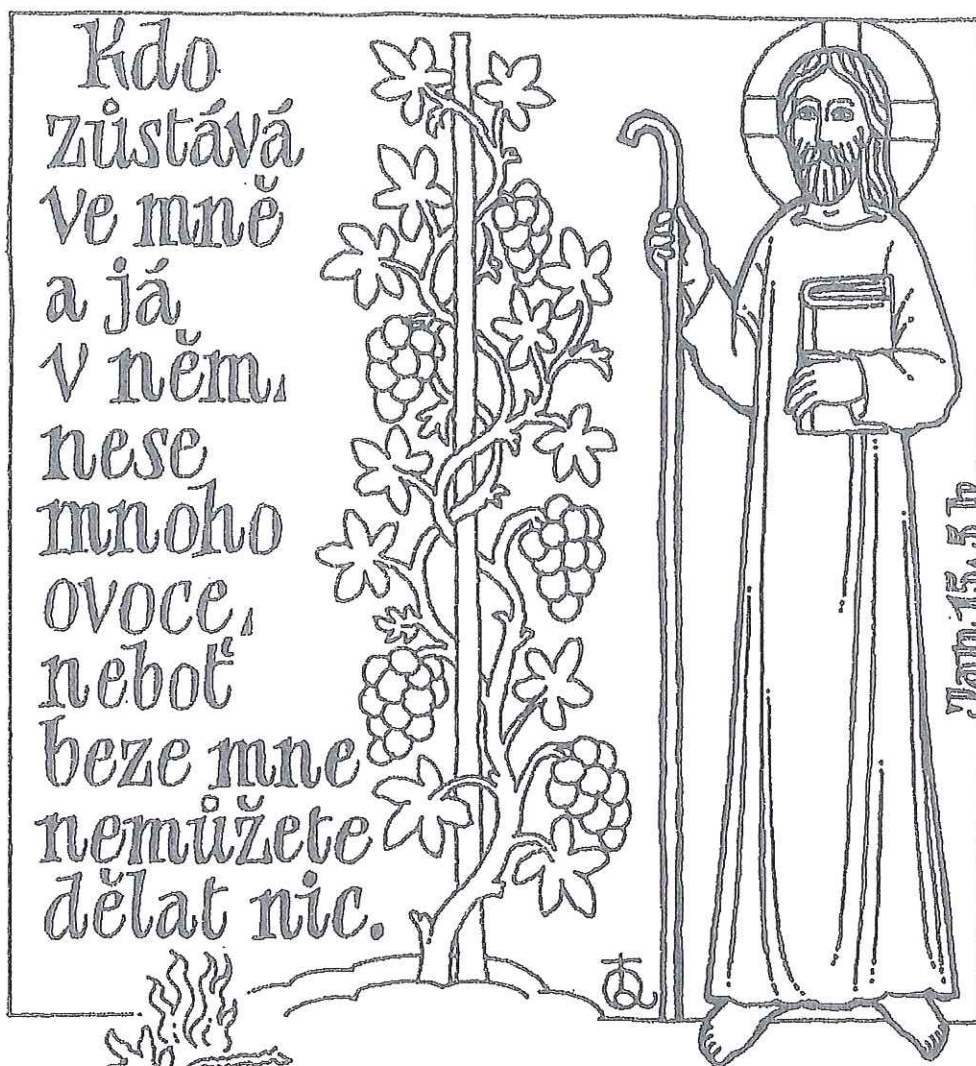 Kdo
zůstává
ve mně
a já
v něm,
nese
mnoho
ovoce,
neboť
beze mne
nemůžete
dělat nic.
Jan 15, 5 b